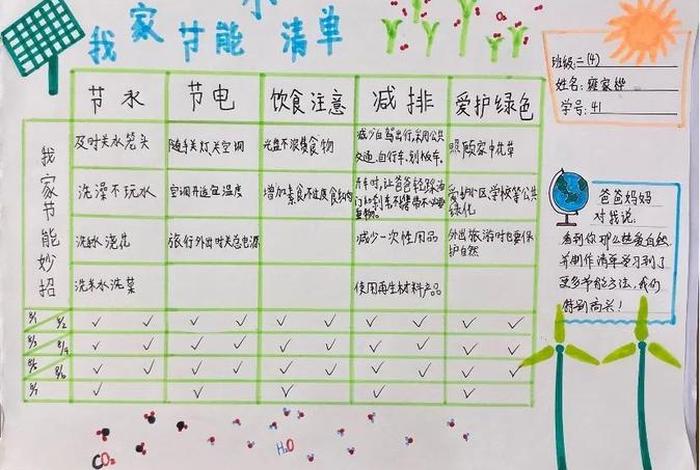 我家节能小清单
班级:二(4)
姓名:雍家桦
学号:41
节水 节电 饮食注意 减排 爱护绿色
我家节能妙招
及时关水笼头
随手关灯关空调
光盘不浪费食物
减少自驾出行,采用公共
交通,自行车、
照顾家中花草
洗澡不玩水
空调开适宜温度
增加素食不过度食肉
开车时,让爸爸轻踩油
门和刹车不
爱护小区学校等公共
绿化
洗脉浇花
旅行外出时关总电源
减少一次性用品
外出旅游时也要保
护自然
洗米水洗菜
使用再生材料产品
8/1 8/2 ✓ ✓ ✓ ✓ ✓ ✓ ✓ ✓ ✓ ✓
8/3 8/4 ✓ ✓ ✓ ✓ ✓ ✓ ✓ ✓ ✓ ✓
8/5 8/6 ✓ ✓ ✓ ✓ ✓ ✓ ✓ ✓ ✓ ✓
8/7 ✓ ✓ ✓ ✓ ✓
爸爸妈妈
对我说:
看到你那么热爱自然
并制作清单学习到了
更多节能方法,我们
特别高兴!
CO₂
H₂O